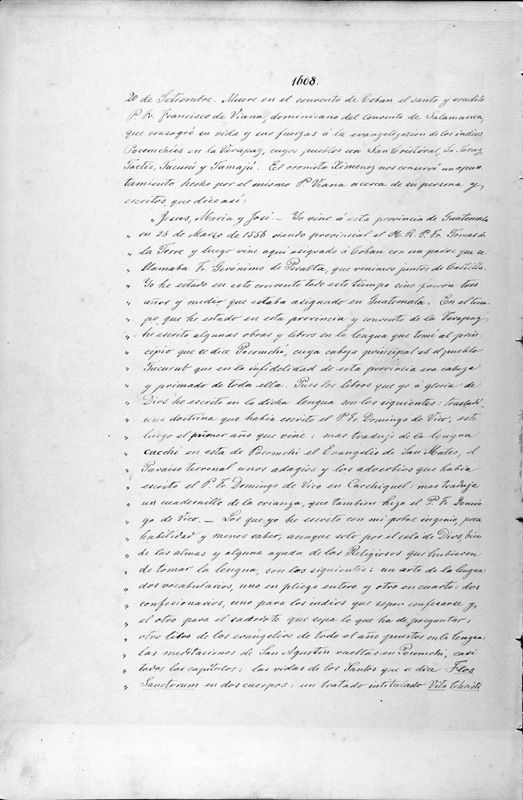 1608.
20 de Setiembre. Muere en el convento de Coban el santo y erudito
P. Fr. Francisco de Viana, dominicano del Convento de Salamanca,
que consagró su vida y sus fuerzas á la evangelizacion de los indios
Pocomchies en la Verapaz, cuyos pueblos son San Cristóval, Sa. Cruz
Tactic, Tucurú y Tamajú. El cronista Ximenez nos conservó un apun-
tamiento hecho por el mismo P. Viana acerca de su persona y
escritos, que dice asi:
„ Jesus, Maria y José – Yo vine á esta provincia de Guatemala
„ en 23 de Marzo de 1556 siendo provincial el M. R. P. Fr. Tomas de
„ la Torre y luego vine aqui asignado á Coban con un padre que se
„ llamaba Fr. Geronimo de Peralta, que venimos juntos de Castilla.
„ Yo he estado en este convento todo este tiempo sino fueron tres
„ años y medio que estaba asignado en Guatemala. En el tiem-
„ po que he estado en esta provincia y convento de la Verapaz
„ he escrito algunas obras y libros en la lengua que tomé al prin-
„ cipio que se dice Pocomchí, cuya cabeza principal es el pueblo
„ Tucurub que en la infidelidad de esta provincia era cabeza
„ y primado de toda ella. Pues los libros que yo á gloria de
„ Dios he escrito en la dicha lengua son los siguientes: trasladé
„ una doctrina que habia escrito el P. Fr. Domingo de Vico, esto
„ luego el primer año que vine: mas traduje de la lengua
„ cacchi en esta de Pocomchi el Evangelio de San Mateo, el
„ Paraiso terrenal unos adagios y los adverbios que habia
„ escrito el P. Fr. Domingo de Vico en Cacchiquel: mas traduje
„ un cuadernillo de la crianza, que tambien hizo el P. Fr. Domin
„ go de Vico. – Los que yo he escrito con mi pobre ingenio, poca
„ habilidad y menos saber, aunque solo por el celo de Dios, bien
„ de las almas y alguna ayuda de los Religiosos que hubiesen
„ de tomar la lengua, son los siguientes: un arte de la lengua:
„ dos vocabularios, uno en pliego entero y otro en cuarto: dos
„ confesionarios, uno para los indios que sepan confesarse y
„ el otro para el sacerdote que sepa lo que ha de preguntar:
„ otro libro de los evangelios de todo el año puestos en la lengua:
„ las meditaciones de San Agustin vueltas en Pocomchi, casi
„ todos los capítulos: las vidas de los Santos que se dice Flos
„ Sanctorum en dos cuerpos: un tratado intitulado Vita Christi